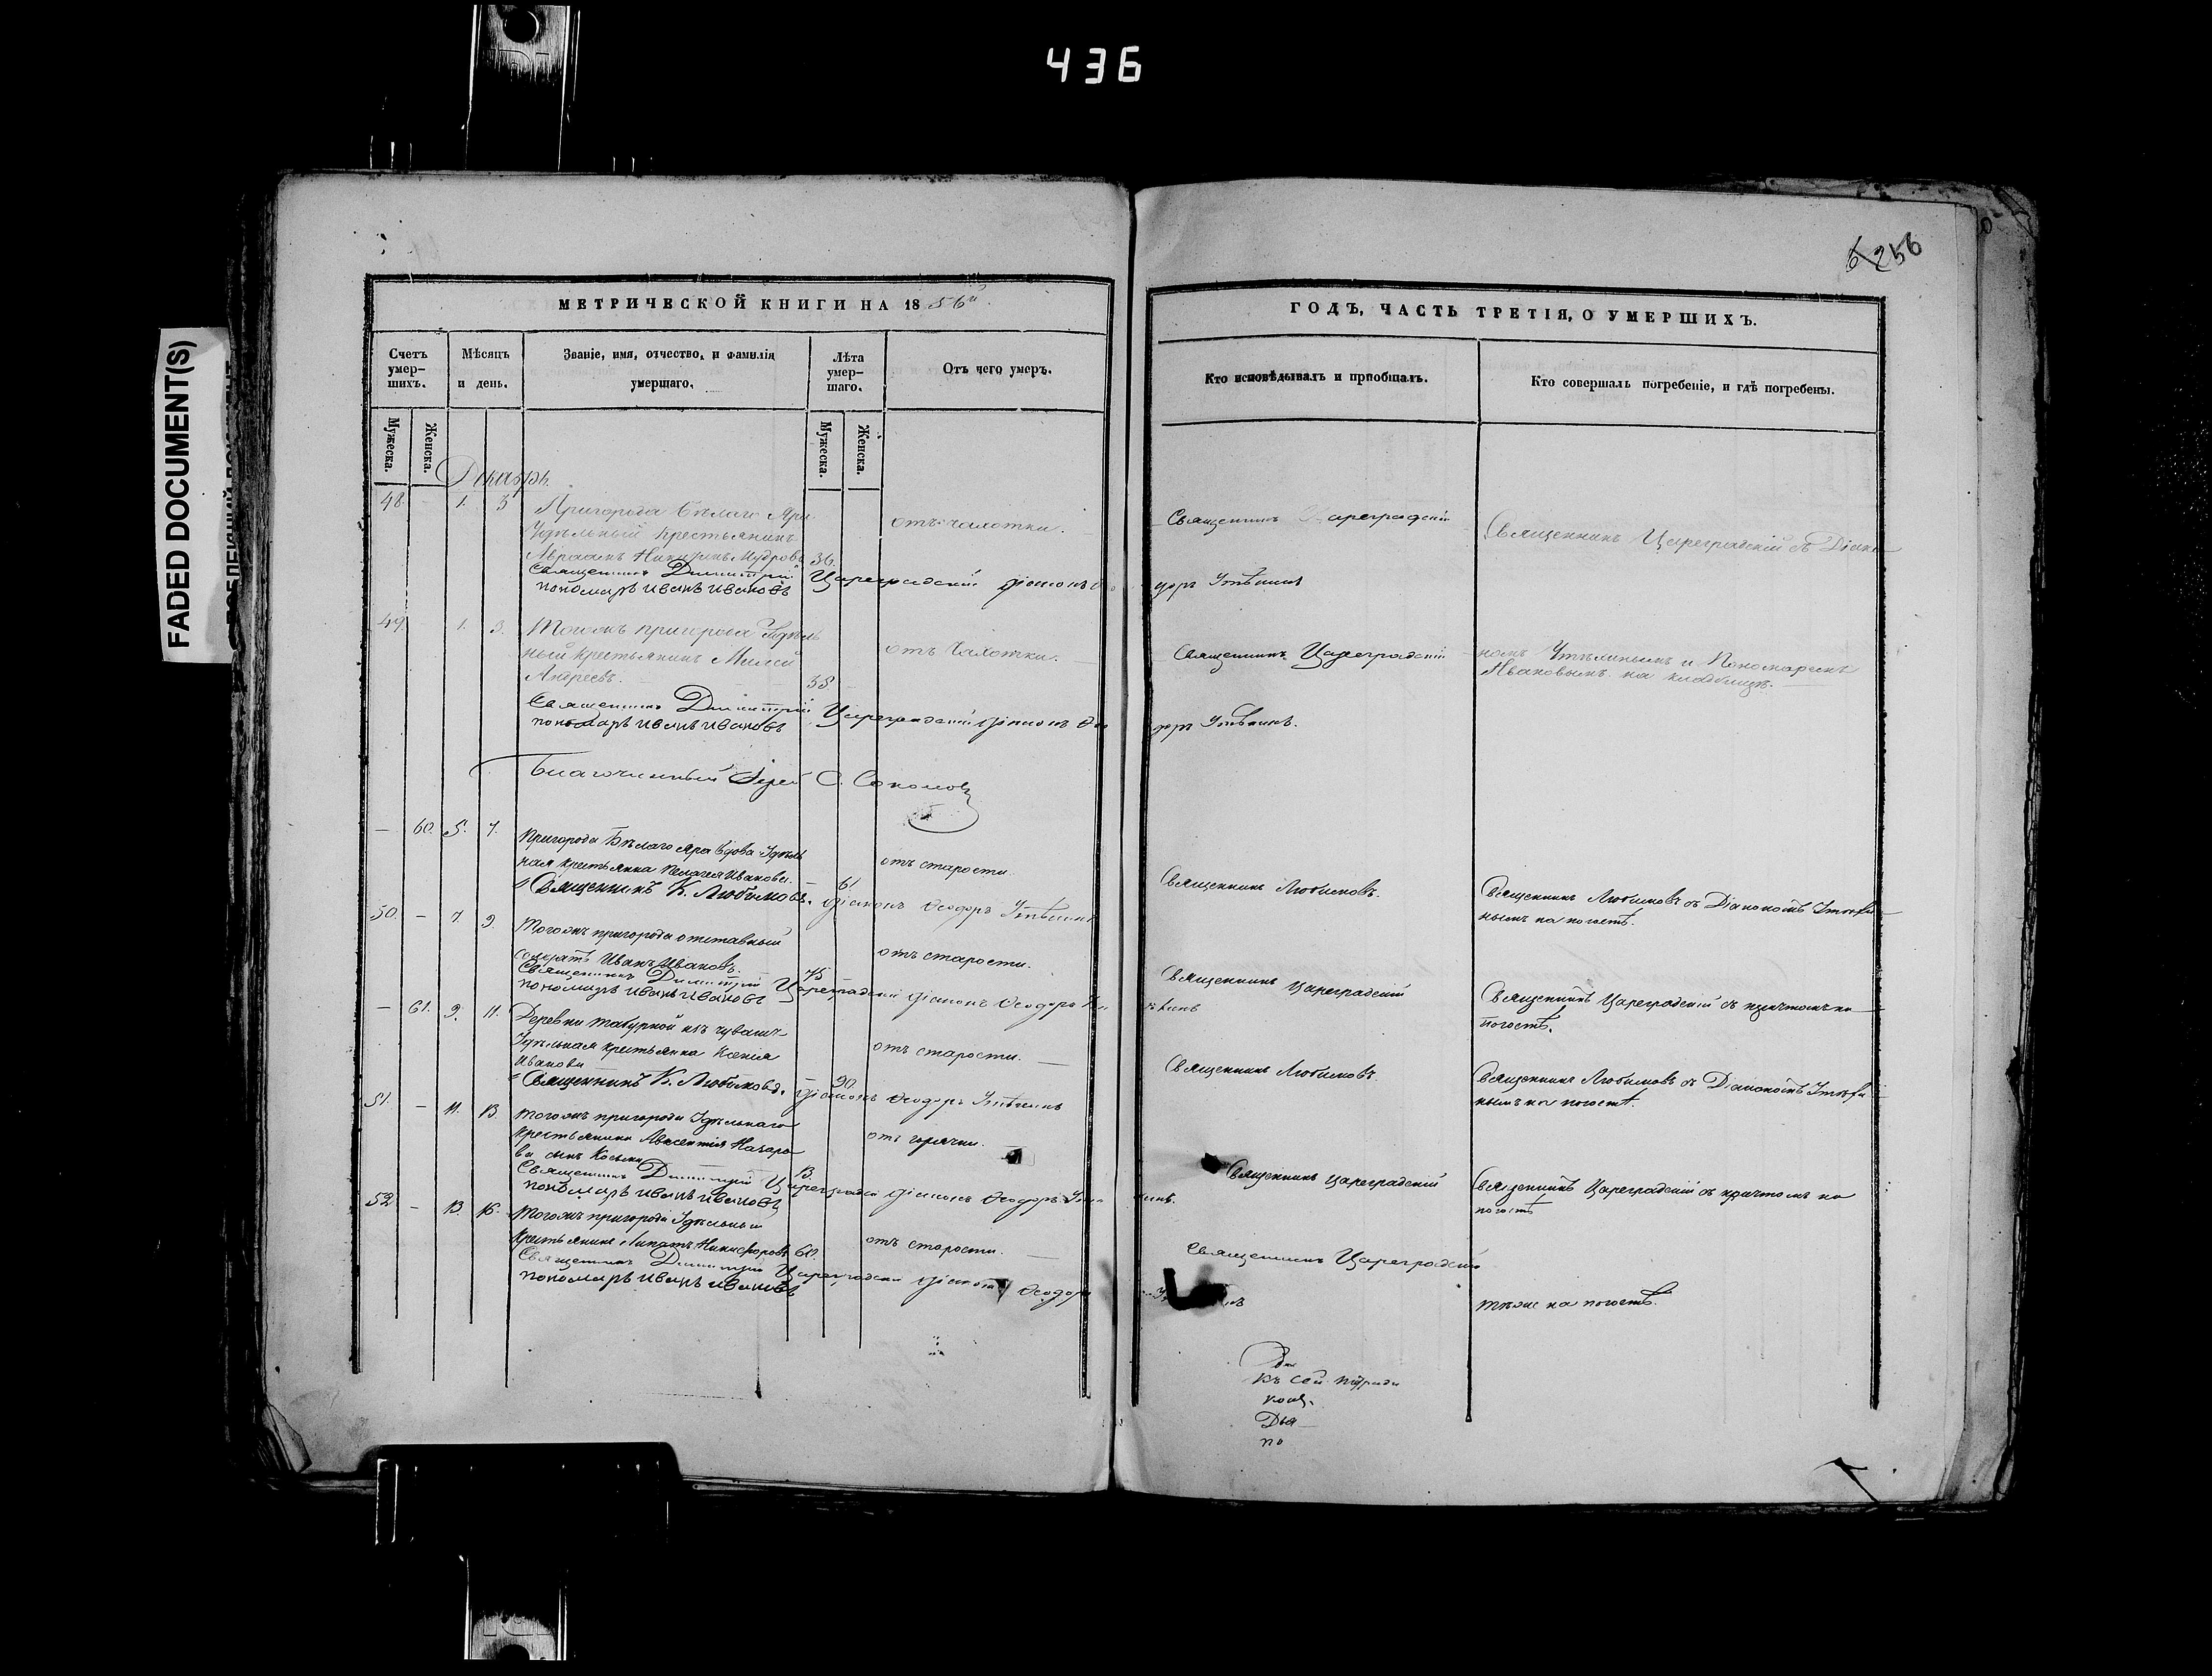 436
FADED DOCUMENT(S)
6 256
МЕТРИЧЕСКОЙ КНИГИ НА 18 56й
ГОДЪ, ЧАСТЬ ТРЕТІЯ, О УМЕРШИХЪ.
Счетъ умер-шихъ.
Мѣсяцъ и день.
Званіе, имя, отчество, и фамилія умершаго.
Лѣта умер-шаго.
Отъ чего умеръ.
Кто исповѣдывалъ и пріобщалъ.
Кто совершалъ погребеніе, и гдѣ погребены.
Мужеска.
Женска.
Мужеска.
Женска.
Декабрь.
48. 1. 3 Пригорода Бѣлаго Яра
Удѣльный крестьянинъ
Авраамъ Никитинъ Мудровъ 36.
отъ чахотки.
Священникъ Цареградскій
Священникъ Цареградскій съ Діако
Священникъ Димитрій Цареградскій Діаконъ Өео
доръ Утѣхинъ
пономарь Иванъ Ивановъ
49. 1. 3. Тогожъ пригорода Удѣль
ный крестьянинъ
Андреевъ. 35
отъ Чахотки.
Священникъ Цареградскій
номъ Утѣхинымъ и Пономаремъ
Ивановымъ на кладбищѣ.
Священникъ Димитрій Цареградскій Діаконъ Өео
доръ Утѣхинъ.
пономарь Иванъ Ивановъ
Благочинный Іерей С. Соколовъ
— 60. 5. 7. Пригорода Бѣлаго Яра вдова Удѣль
ная крестьянка Пелагея Иванова. 61
отъ старости.
Священникъ Любимовъ.
Священникъ Любимовъ съ Діакономъ Утѣхи
нымъ на погостѣ.
Священникъ К. Любимовъ. Діаконъ Өеодоръ Утѣхинъ
50. — 7. 9. Тогожъ пригорода отставный
солдатъ Иванъ Ивановъ. 75
отъ старости.
Священникъ Цареградскій
Священникъ Цареградскій съ причтомъ на
погостѣ.
Священникъ Димитрій Цареградскій Діаконъ Өеодоръ
пономарь Иванъ Ивановъ
— 61. 9. 11. Деревни изъ чувашъ
Удѣльная крестьянка Ксенія
Иванова 90
отъ старости.
Священникъ Любимовъ.
Священникъ Любимовъ съ Діакономъ Утѣхи
нымъ на погостѣ.
Священникъ К. Любимовъ. Діаконъ Өеодоръ Утѣхинъ
51. — 11. 13. Тогожъ пригорода Удѣльнаго
крестьянина Назаро
ва сынъ Косьма 13
отъ горячки.
Священникъ Цареградскій
Священникъ Цареградскій съ причтомъ на
погостѣ
Священникъ Димитрій Цареградскій Діаконъ Өеодоръ
пономарь Иванъ Ивановъ
52. — 13. 16. Тогожъ пригорода Удѣльный
крестьянинъ Никифоровъ 60.
отъ старости.
Священникъ Цареградскій
тѣже на погостѣ.
Священникъ Димитрій Цареградскій Діаконъ Өеодоръ
пономарь Иванъ Ивановъ
къ сей тетради